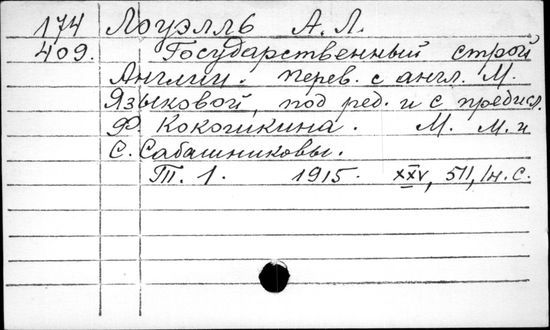 174 Лоуэлль А. Л.
409. Государственный строй
Англии. Перев. с англ. М.
Языковой, под ред. и с предисл.
Ф. Кокошкина. М. М. и
С. Сабашниковы.
Т. 1. 1915. XXV, 511, 1н. с.